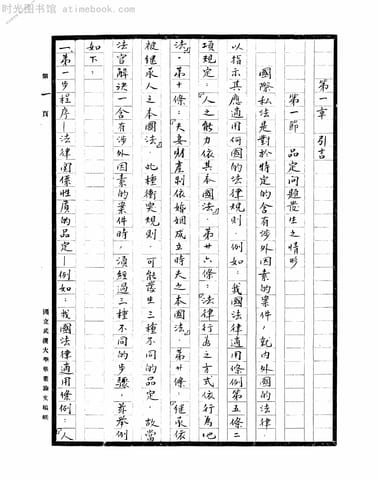 时光图书馆 atimebook.com
第一章 引言
第一节 品定问题發生之情形
國際私法是對於特定的含有涉外因素的案件,就内外國的法律,
以指示其應適用何國的法律規則。例如:我國法律適用條例第五條二
項規定:「人之能力依其本國法」。第廿六條:「法律行為之方式依行為地
法」。第十條:「夫妻財產制依婚姻成立時夫之本國法」。第廿條:「继承依
被继承人之本國法」。此種衝突規則,可能發生三種不同的品定,故當
法官解决一含有涉外因素的案件時,須經過三種不同的步驟,兹舉例
如下:
一、第一步程序—法律関係性質的品定—例如:我國法律適用條例:「人
第 一 頁
國立武漢大學畢業論文稿紙